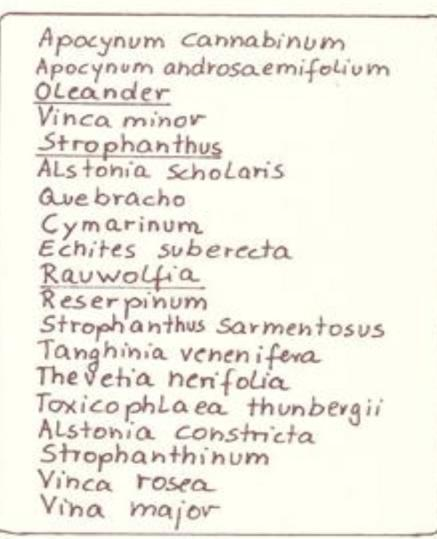 Apocynum cannabinum
Apocynum androsaemifolium
Oleander
Vinca minor
Strophanthus
Alstonia scholaris
Quebracho
Cymarinum
Echites suberecta
Rauwolfia
Reserpinum
Strophanthus sarmentosus
Tanghinia venenifera
Thevetia nerifolia
Toxicophlaea thunbergii
Alstonia constricta
Strophanthinum
Vinca rosea
Vina major